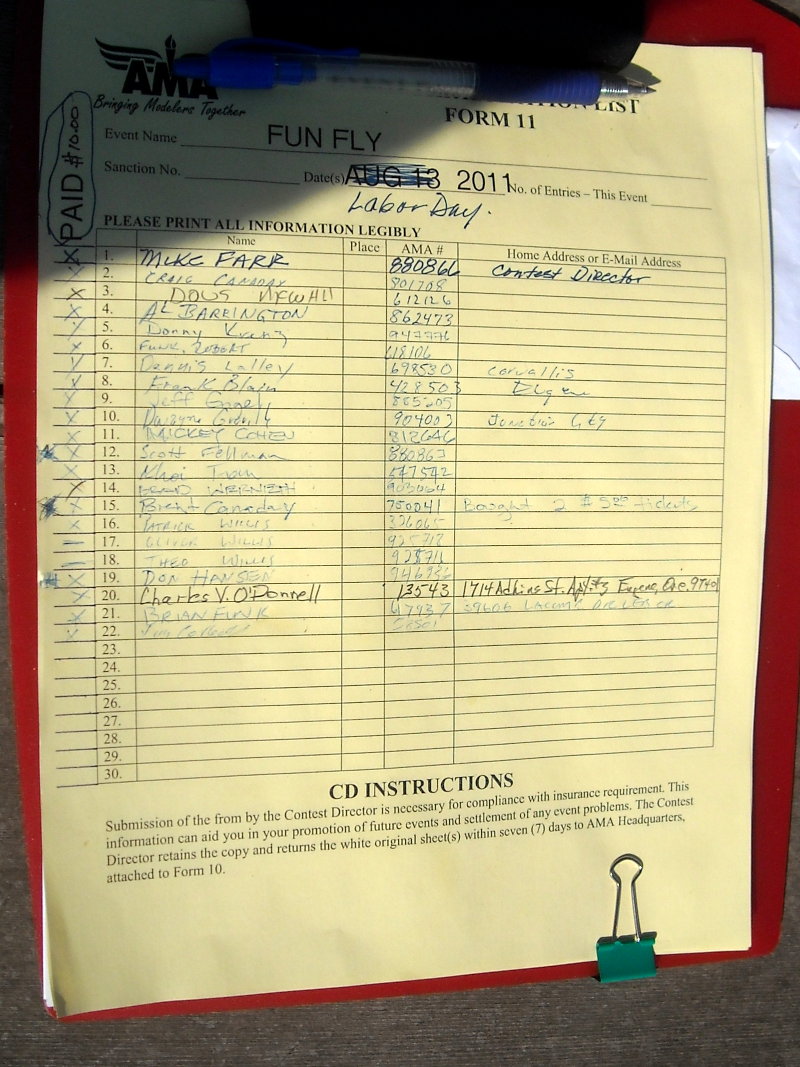 AMA
Bringing Modelers Together
LIST
FORM 11
PAID $10.00
Event Name FUN FLY
Sanction No. Date(s) AUG 13 2011 No. of Entries – This Event
Labor Day.
PLEASE PRINT ALL INFORMATION LEGIBLY
Name Place AMA # Home Address or E-Mail Address
X 1. MIKE FARR 880866 Contest Director
2. CRAIG CANADAY 801708
X 3. DOUG 612126
X 4. AL BARRINGTON 862473
5. Donny
X 6. FUNK, ROBERT
7. Dennis Lalley 698530 Corvallis
8. Frank Blain 428503 Eugene
9. Jeff
X 10. 904003 Junction City
11. MICKEY COHEN 812646
X 12. Scott Fellman 880863
X 13. Khoi Tran
X 14. FRED
X 15. Brent Canaday 750041 Bought 2 $5.00 tickets
X 16. PATRICK WILLIS 326065
– 17. OLIVER WILLIS
– 18. THEO WILLIS
X 19. DON HANSEN
X 20. Charles V. O'Donnell 13543 1714 Adkins St. Eugene, Ore. 97401
X 21. BRIAN FUNK
22. Jim
23.
24.
25.
26.
27.
28.
29.
30.
CD INSTRUCTIONS
Submission of the from by the Contest Director is necessary for compliance with insurance requirement. This
information can aid you in your promotion of future events and settlement of any event problems. The Contest
Director retains the copy and returns the white original sheet(s) within seven (7) days to AMA Headquarters,
attached to Form 10.